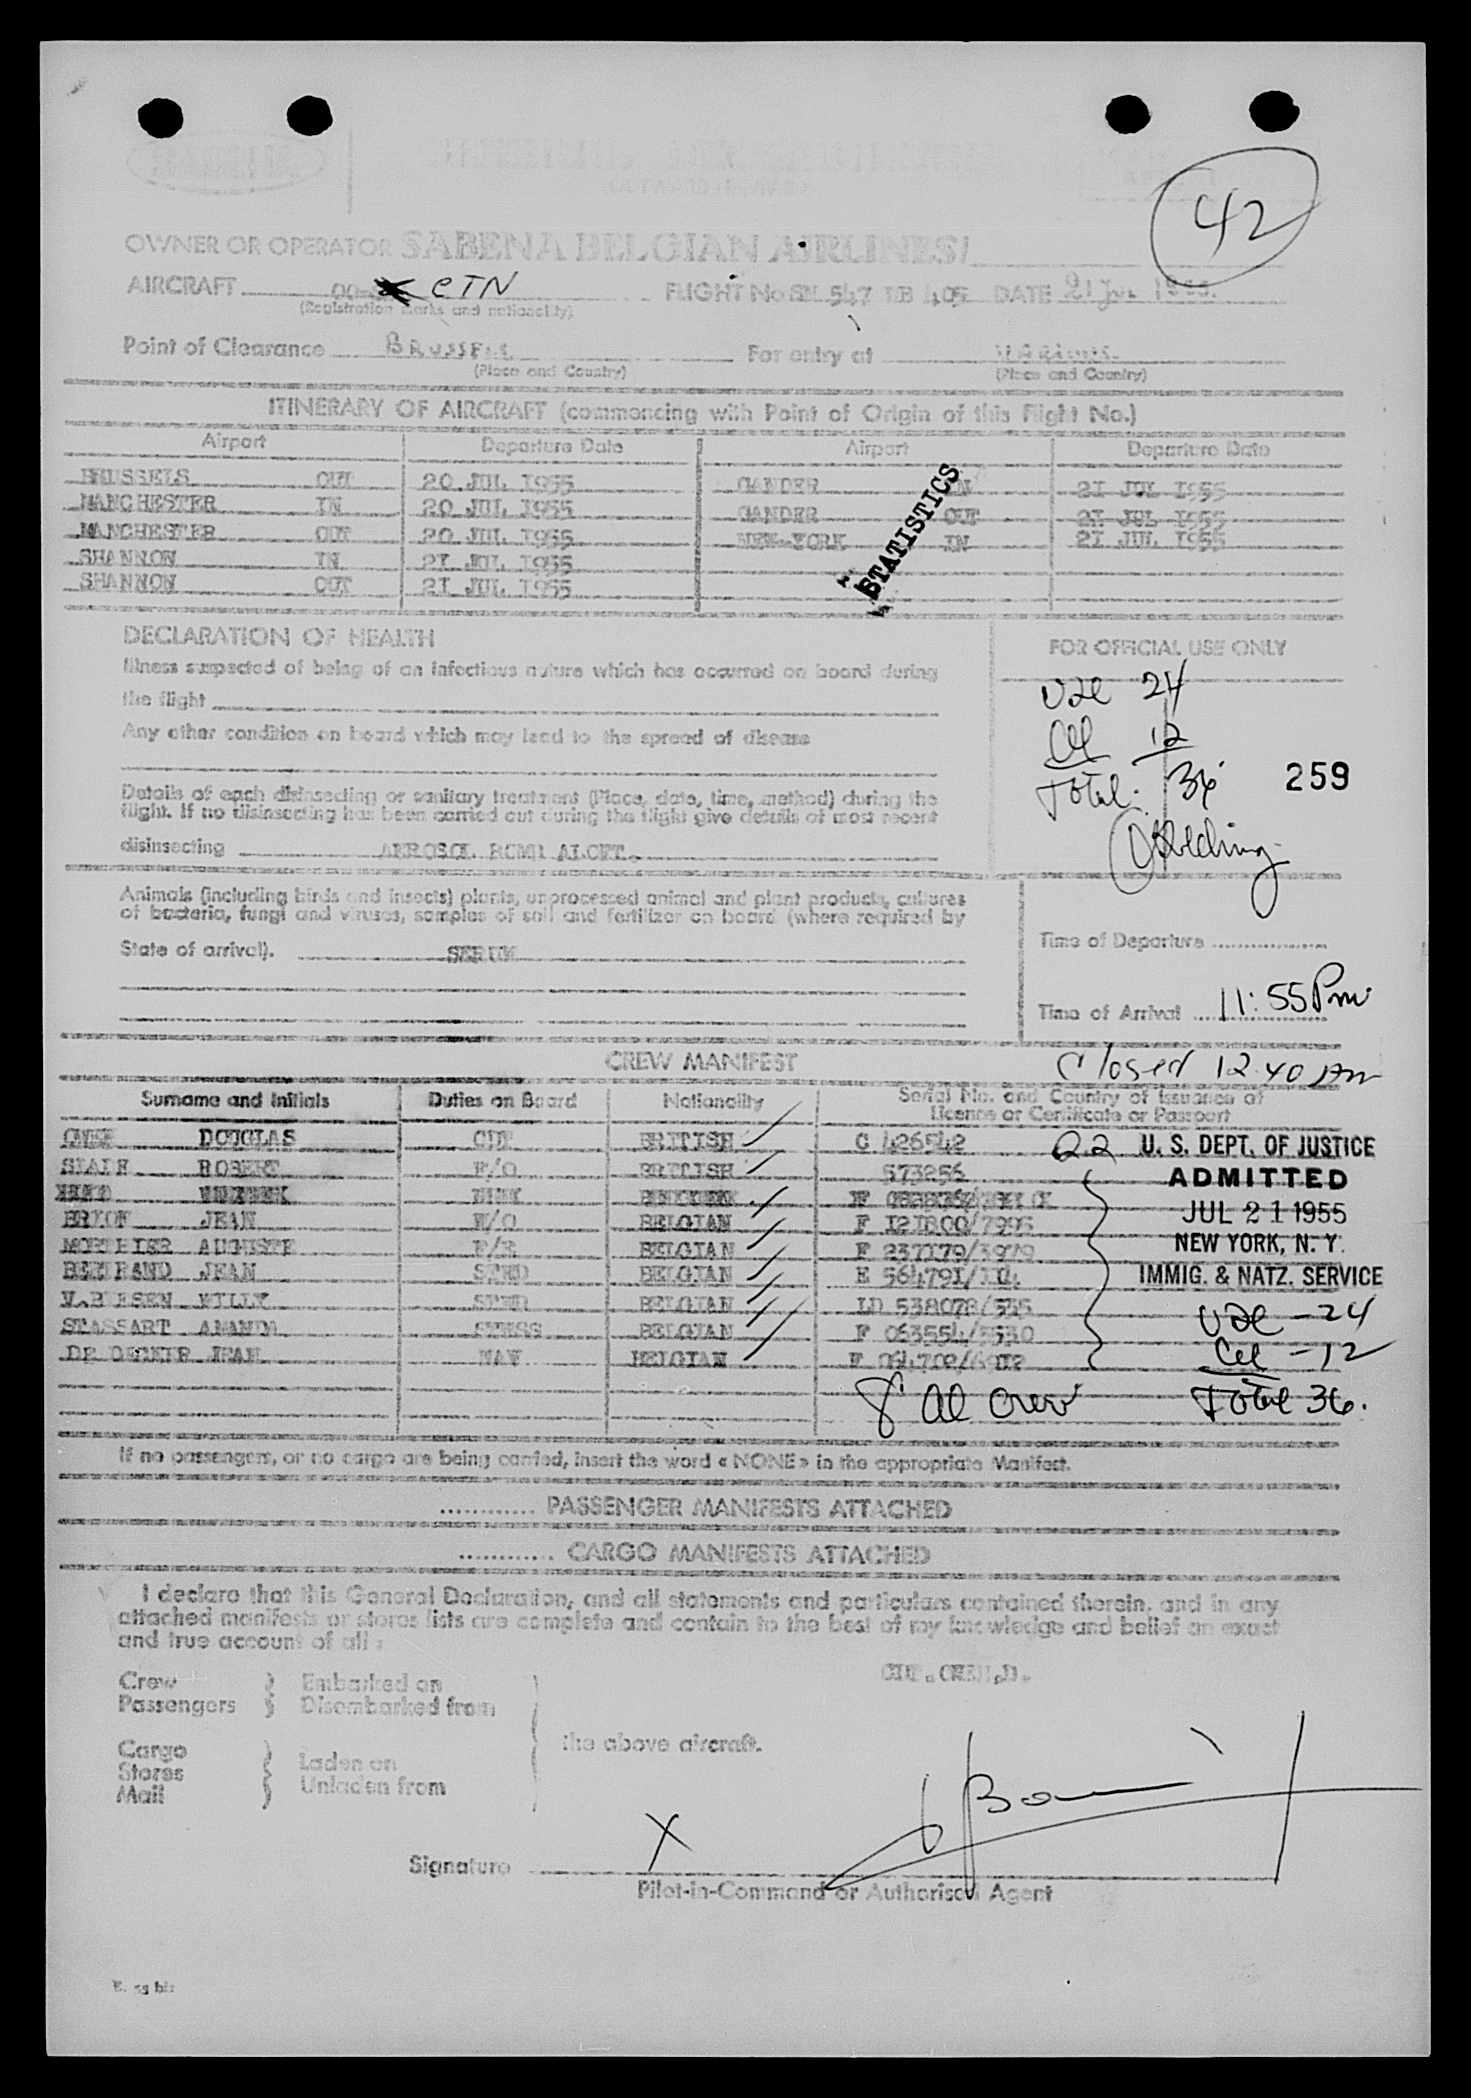 42
OWNER OR OPERATOR SABENA BELGIAN AIRLINES/
AIRCRAFT OO- CTN FLIGHT No SN 547 DATE 21 Jul 1955.
(Registration marks and nationality)
Point of Clearance BRUSSELS For entry at
(Place and Country) (Place and Country)
ITINERARY OF AIRCRAFT (commencing with Point of Origin of this Flight No.)
Airport Departure Date Airport Departure Date
BRUSSELS OUT 20 JUL 1955 GANDER IN 21 JUL 1955
MANCHESTER IN 20 JUL 1955 GANDER OUT 21 JUL 1955
MANCHESTER OUT 20 JUL 1955 NEW-YORK IN 21 JUL 1955
SHANNON IN 21 JUL 1955
SHANNON OUT 21 JUL 1955
STATISTICS
DECLARATION OF HEALTH
Illness suspected of being of an infectious nature which has occurred on board during
the flight
Any other condition on board which may lead to the spread of disease
Details of each disinsecting or sanitary treatment (Place, date, time, method) during the
flight. If no disinsecting has been carried out during the flight give details of most recent
disinsecting AEROSOL BOMB ALCFT.
FOR OFFICIAL USE ONLY
use 24
Cel 12
Total. 36
259
Animals (including birds and insects) plants, unprocessed animal and plant products, cultures
of bacteria, fungi and viruses, samples of soil and fertilizer on board (where required by
State of arrival). SERUM
Time of Departure
Time of Arrival 11:55 Pm
CREW MANIFEST
Closed 12.40 AM
Surname and Initials Duties on Board Nationality Serial No. and Country of Issuance of
Licence or Certificate or Passport
DOUGLAS CDR BRITISH C 426542
ROBERT F/O BRITISH 573256
BRICF JEAN BELGIAN F 121800/7995
MORTHIER AUGUSTE BELGIAN F 237179/3979
BERTRAND JEAN STWD BELGIAN E 564791/114
V.BIESEN WILLY STWD BELGIAN LD 538078/535
STASSART AMANDA BELGIAN F 063554/5530
DE DECKER JEAN NAV BELGIAN
22 U. S. DEPT. OF JUSTICE
ADMITTED
JUL 21 1955
NEW YORK, N. Y.
IMMIG. & NATZ. SERVICE
use - 24
Cel - 12
Total 36.
8 al crew
If no passengers, or no cargo are being carried, insert the word « NONE » in the appropriate Manifest.
............ PASSENGER MANIFESTS ATTACHED
............ CARGO MANIFESTS ATTACHED
I declare that this General Declaration, and all statements and particulars contained therein, and in any
attached manifests or stores lists are complete and contain to the best of my knowledge and belief an exact
and true account of all :
Crew Embarked on
Passengers Disembarked from
the above aircraft.
Cargo
Stores Laden on
Mail Unladen from
X
Signature
Pilot-in-Command or Authorised Agent
E. 53 bis